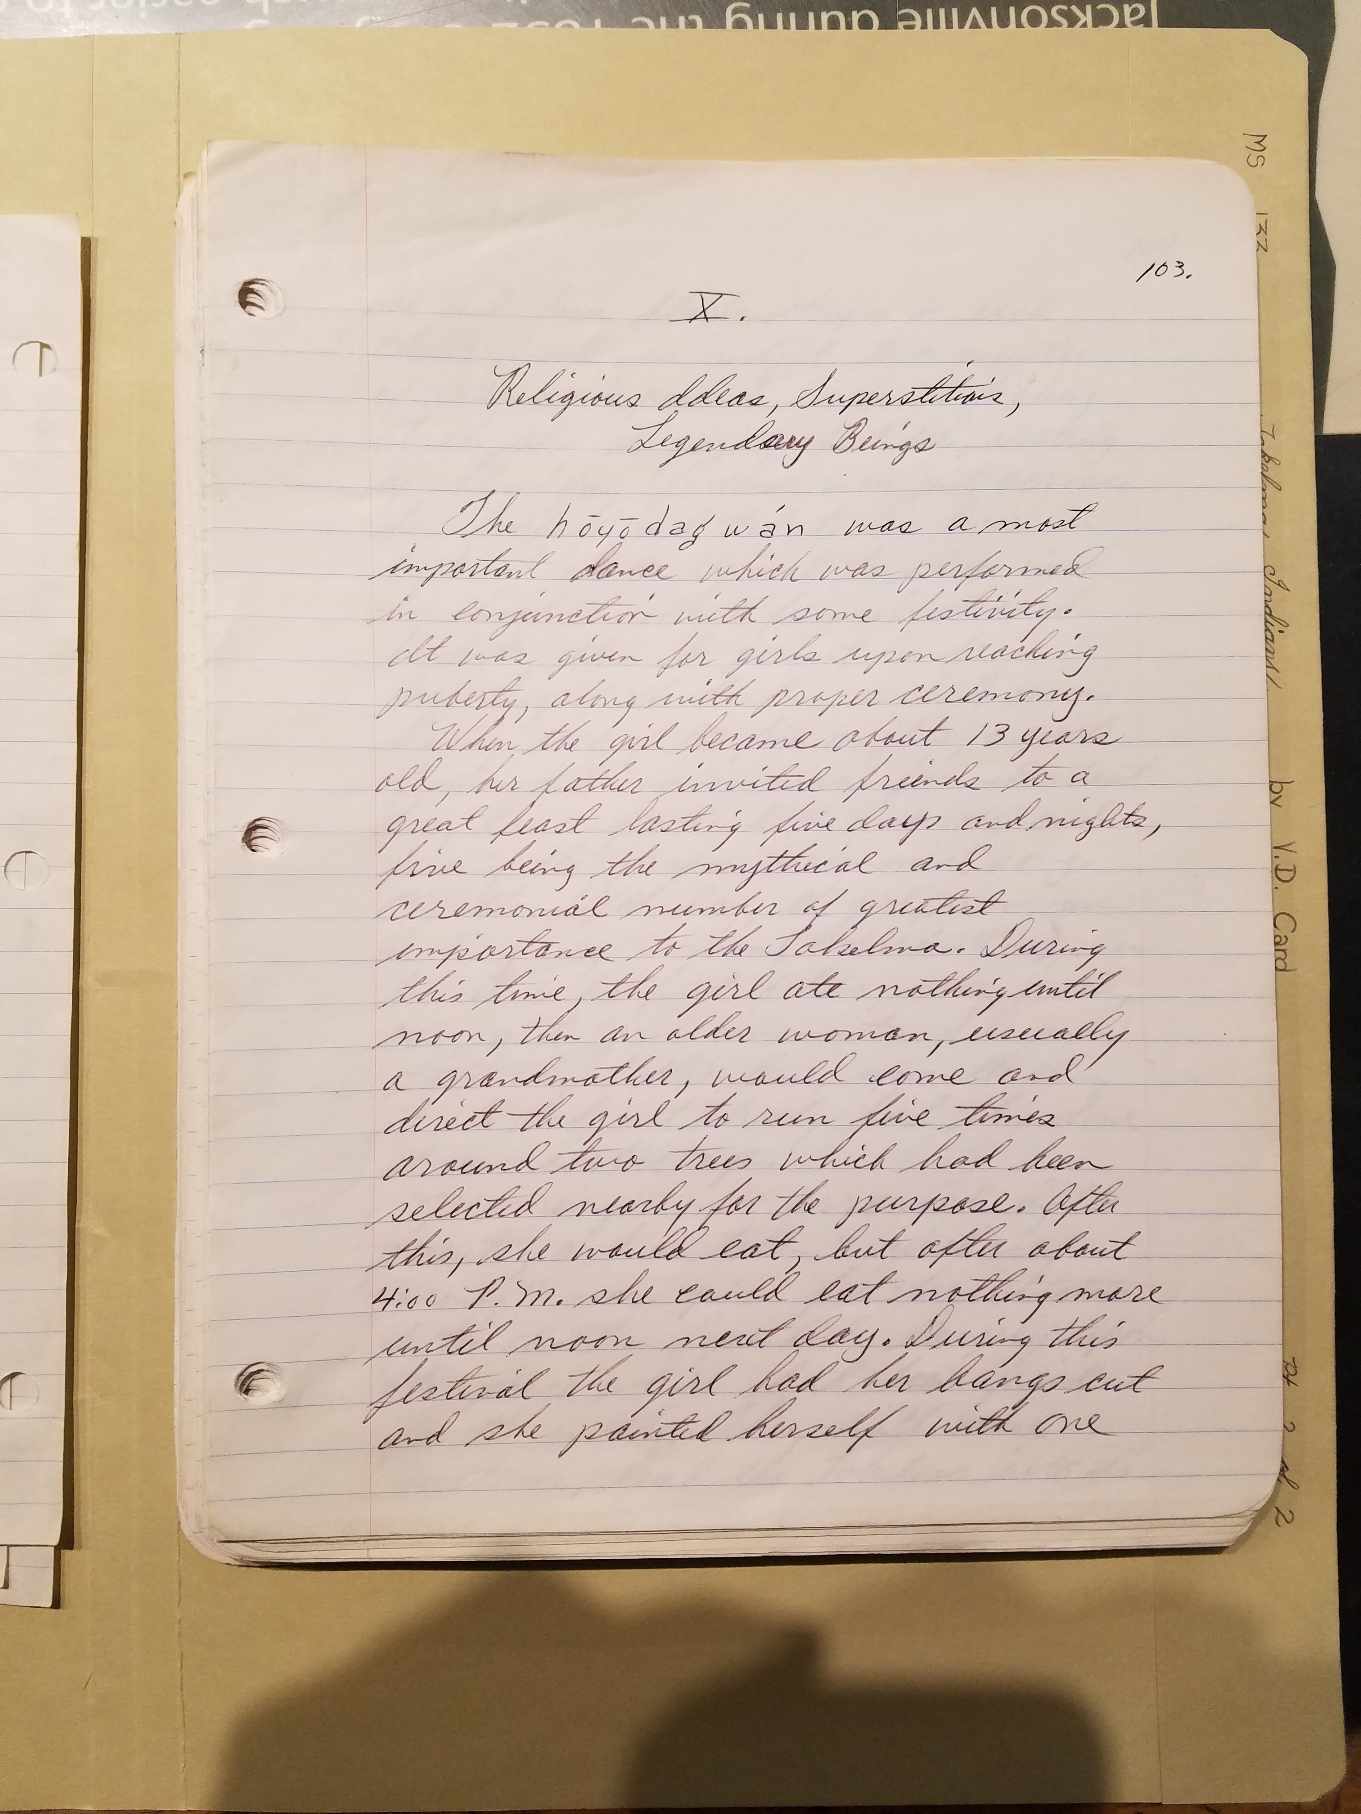 Jacksonville during the
103.
X.
Religious Ideas, Superstitions,
Legendary Beings
The hōyōdagwán was a most
important dance which was performed
in conjunction with some festivity.
It was given for girls upon reaching
puberty, along with proper ceremony.
When the girl became about 13 years
old, her father invited friends to a
great feast lasting five days and nights,
five being the mythical and
ceremonial number of greatest
importance to the Takelma. During
this time, the girl ate nothing until
noon, then an older woman, usually
a grandmother, would come and
direct the girl to run five times
around two trees which had been
selected nearby for the purpose. After
this, she would eat, but after about
4:00 P.M. she could eat nothing more
until noon next day. During this
festival the girl had her bangs cut
and she painted herself with one
MS 132 "Takelma Indians" by V.D. Card Pt 2 of 2